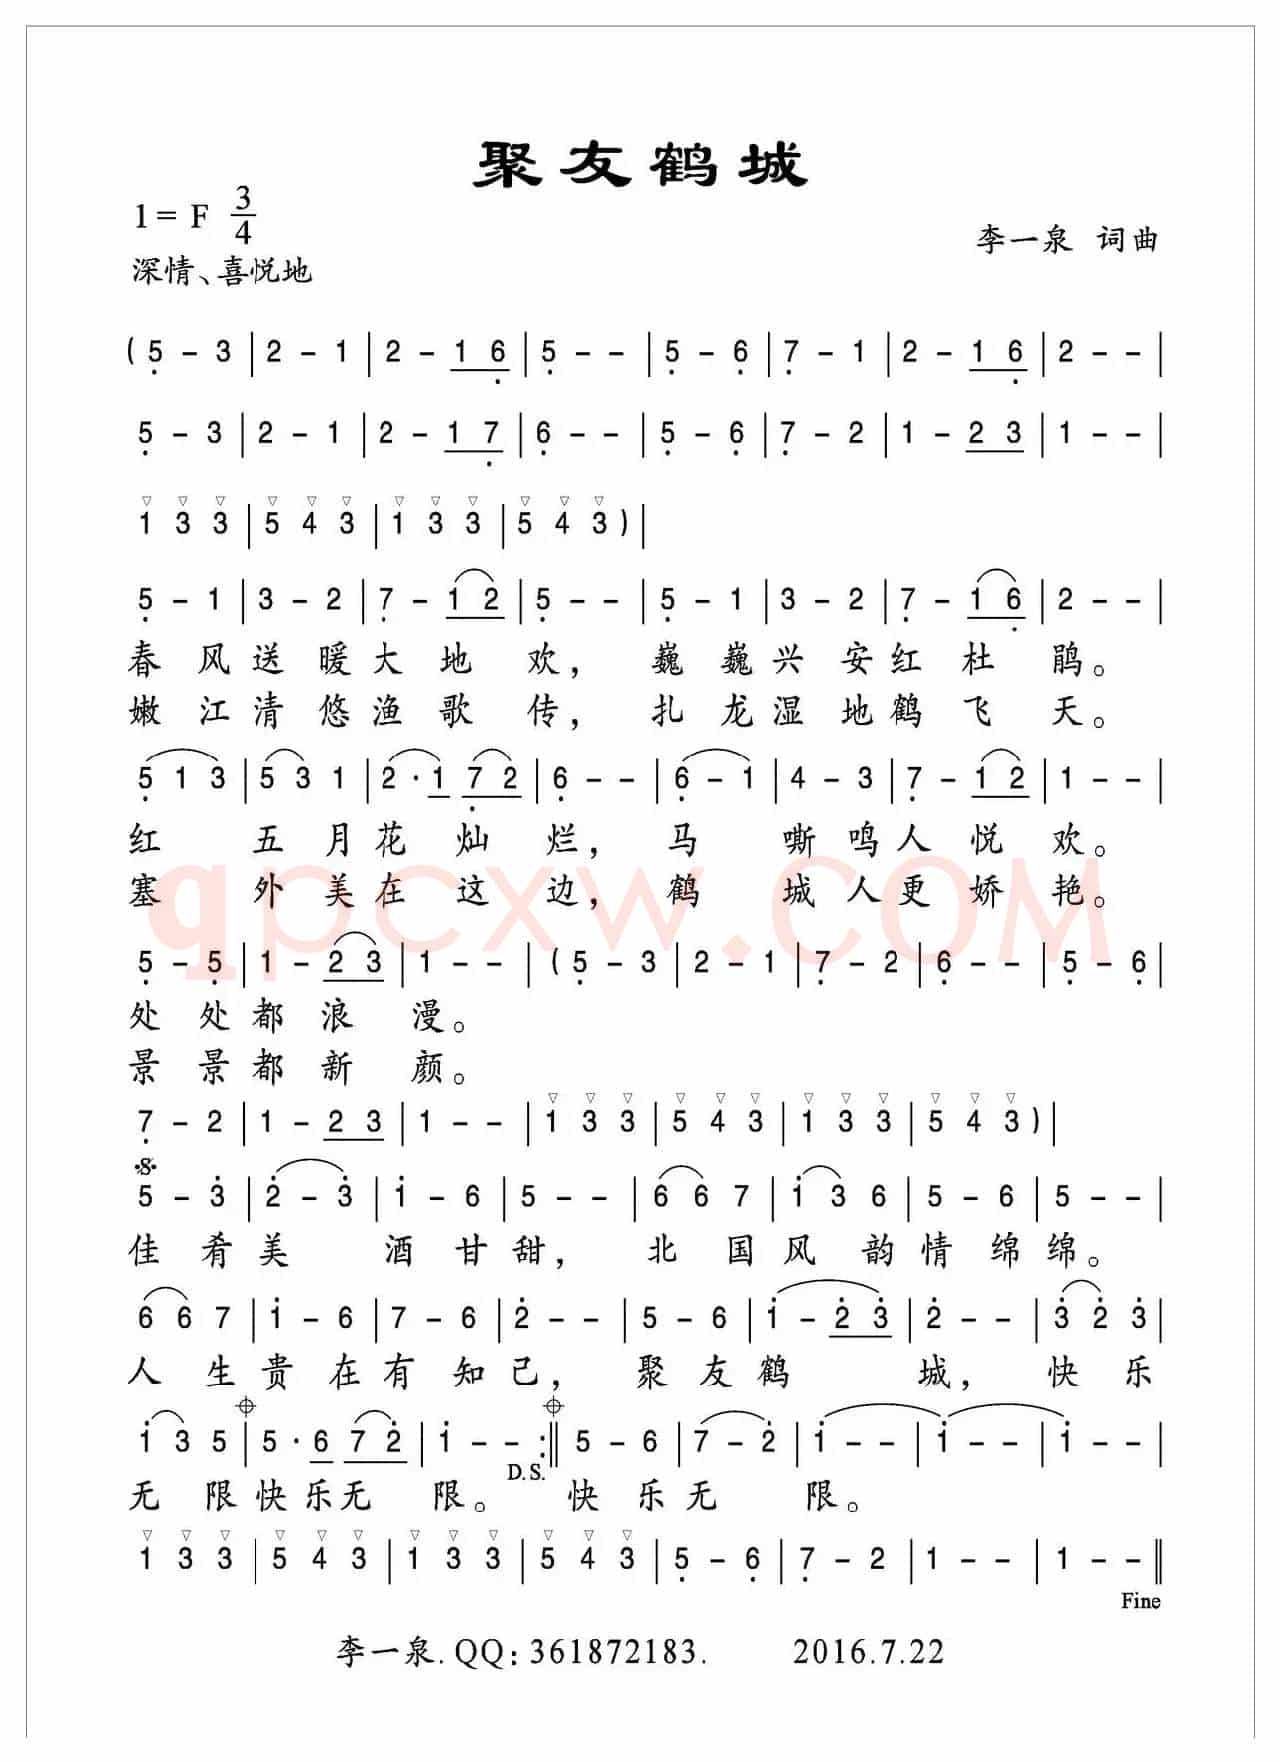 聚友鹤城
1= F 3/4
李一泉 词曲
深情、喜悦地
( 5 - 3 | 2 - 1 | 2 - 1 6 | 5 - - | 5 - 6 | 7 - 1 | 2 - 1 6 | 2 - - |
5 - 3 | 2 - 1 | 2 - 1 7 | 6 - - | 5 - 6 | 7 - 2 | 1 - 2 3 | 1 - - |
1 3 3 | 5 4 3 | 1 3 3 | 5 4 3 ) |
5 - 1 | 3 - 2 | 7 - 1 2 | 5 - - | 5 - 1 | 3 - 2 | 7 - 1 6 | 2 - - |
春风送暖大地欢，巍巍兴安红杜鹃。
嫩江清悠渔歌传，扎龙湿地鹤飞天。
5 1 3 | 5 3 1 | 2 · 1 7 2 | 6 - - | 6 - 1 | 4 - 3 | 7 - 1 2 | 1 - - |
红五月花灿烂，马嘶鸣人悦欢。
塞外美在这边，鹤城人更娇艳。
qpcxw.COM
5 - 5 | 1 - 2 3 | 1 - - | ( 5 - 3 | 2 - 1 | 7 - 2 | 6 - - | 5 - 6 |
处处都浪漫。
景景都新颜。
7 - 2 | 1 - 2 3 | 1 - - | 1 3 3 | 5 4 3 | 1 3 3 | 5 4 3 ) |
5 - 3 | 2 - 3 | 1 - 6 | 5 - - | 6 6 7 | 1 3 6 | 5 - 6 | 5 - - |
佳肴美酒甘甜，北国风韵情绵绵。
6 6 7 | 1 - 6 | 7 - 6 | 2 - - | 5 - 6 | 1 - 2 3 | 2 - - | 3 2 3 |
人生贵在有知己，聚友鹤城，快乐
1 3 5 | 5 · 6 7 2 | 1 - - :|| 5 - 6 | 7 - 2 | 1 - - | 1 - - | 1 - - |
D.S.
无限快乐无限。快乐无限。
1 3 3 | 5 4 3 | 1 3 3 | 5 4 3 | 5 - 6 | 7 - 2 | 1 - - | 1 - - ||
Fine
李一泉.QQ:361872183. 2016.7.22